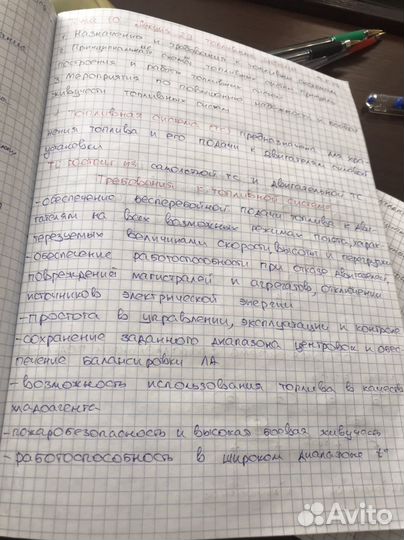 Тема 10 Лекция 22 Топливная
1. Назначение и требования к топливным системам
2. Принципиальная схема топливной системы принцип
построения и работа топливной системы
3. Мероприятия по повышению надежности и боевой
живучести топливных систем
Топливная система (тс) предназначена для хра-
нения топлива и его подачи к двигателям силовой
установки
ТС состоит из самолетной тс и двигательной тс
Требования к топливной системе
-обеспечение бесперебойной подачи топлива к дви-
гателям на всех возможных режимах полета, харак-
теризуемых величинами скорости, высоты и перегрузки
-обеспечение работоспособности при отказе двигателей,
повреждений магистралей и агрегатов, отключении
источников электрической энергии
-простота в управлении, эксплуатации и контроле
-сохранение заданного диапазона центровок и обес-
печение балансировки ЛА
-возможность использования топлива в качестве
хладоагента
-пожаробезопасность и высокая боевая живучесть
-работоспособность в широком диапазоне t°
Avito